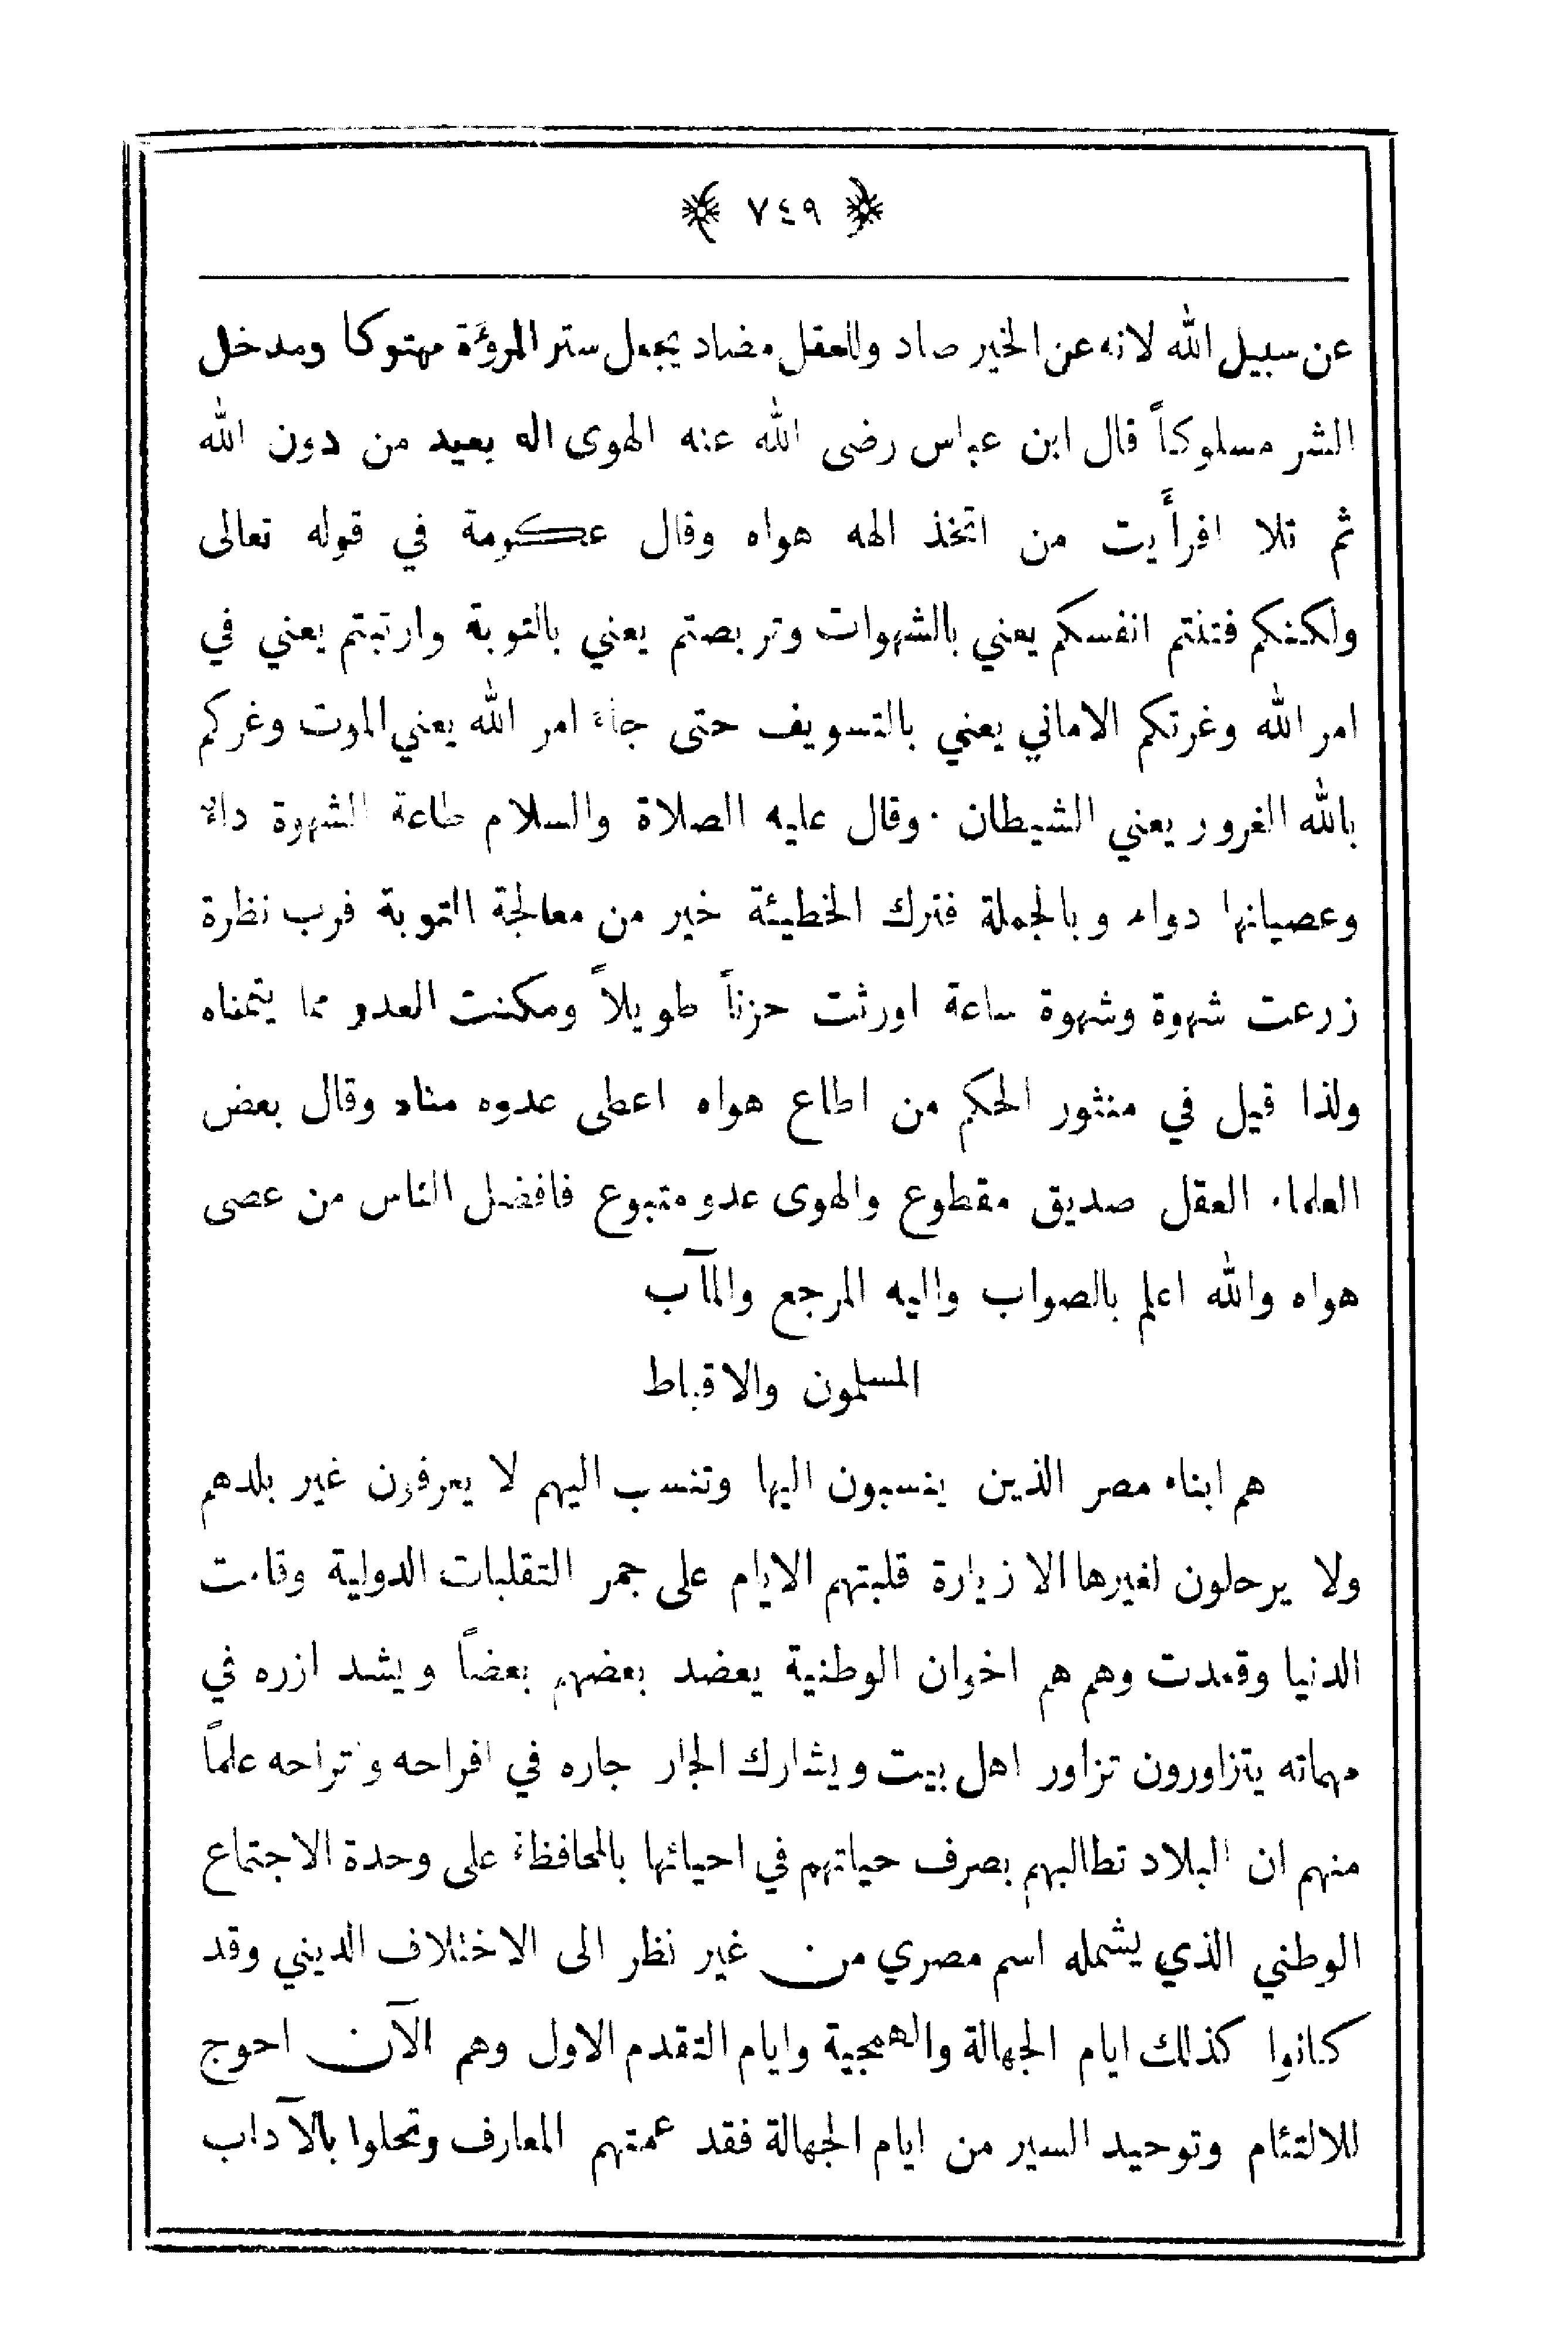 ﴿ ٧٤٩ ﴾
عن سبيل الله لانه عن الخير صاد وللعقل مضاد يجعل ستر المروءة مهتوكا ومدخل
الشر مسلوكاً قال ابن عباس رضى الله عنه الهوى اله يعبد من دون الله
ثم تلا افرأيت من اتخذ الهه هواه وقال عكرمة في قوله تعالى
ولكنكم فتنتم انفسكم يعني بالشهوات وتربصتم يعني بالتوبة وارتبتم يعني في
امر الله وغرتكم الاماني يعني بالتسويف حتى جاء امر الله يعني الموت وغركم
بالله الغرور يعني الشيطان . وقال عليه الصلاة والسلام طاعة الشهوة داء
وعصيانها دواء وبالجملة فترك الخطيئة خير من معالجة التوبة فرب نظرة
زرعت شهوة وشهوة ساعة اورثت حزناً طويلاً ومكنت العدو مما يتمناه
ولذا قيل في منثور الحكم من اطاع هواه اعطى عدوه مناه وقال بعض
العلماء العقل صديق مقطوع والهوى عدو متبوع فافضل الناس من عصى
هواه والله اعلم بالصواب واليه المرجع والمآب
المسلمون والاقباط
هم ابناء مصر الذين ينسبون اليها وتنسب اليهم لا يعرفون غير بلدهم
ولا يرحلون لغيرها الا زيارة قلبتهم الايام على جمر التقلبات الدولية وقامت
الدنيا وقعدت وهم هم اخوان الوطنية يعضد بعضهم بعضاً ويشد ازره في
مهماته يتزاورون تزاور اهل بيت ويشارك الجار جاره في افراحه واتراحه علماً
منهم ان البلاد تطالبهم بصرف حياتهم في احيائها بالمحافظة على وحدة الاجتماع
الوطني الذي يشمله اسم مصري من غير نظر الى الاختلاف الديني وقد
كانوا كذلك ايام الجهالة والهمجية وايام التقدم الاول وهم الآن احوج
للالتئام وتوحيد السير من ايام الجهالة فقد عمتهم المعارف وتحلوا بالآداب